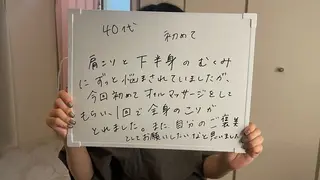 40代 初めて
肩こりと下半身のむくみ
にずっと悩まされていましたが、
今回初めてオイルマッサージをして
もらい、1回で全身のこりが
とれました。また自分のご褒美
としてお願いしたいなと思いました